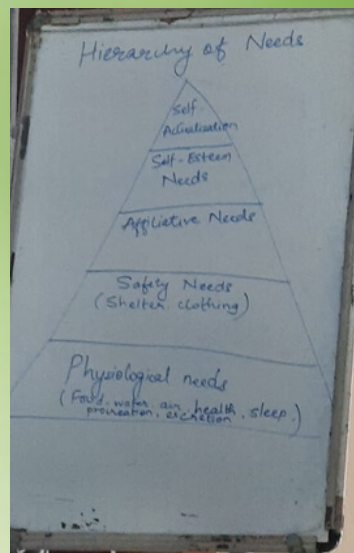 Hierarchy of Needs
Self-
Actualization
Self-Esteem
Needs
Affiliative Needs
Safety Needs
(Shelter. clothing)
Physiological needs
(Food. water. air. health. sleep.
procreation. excretion)